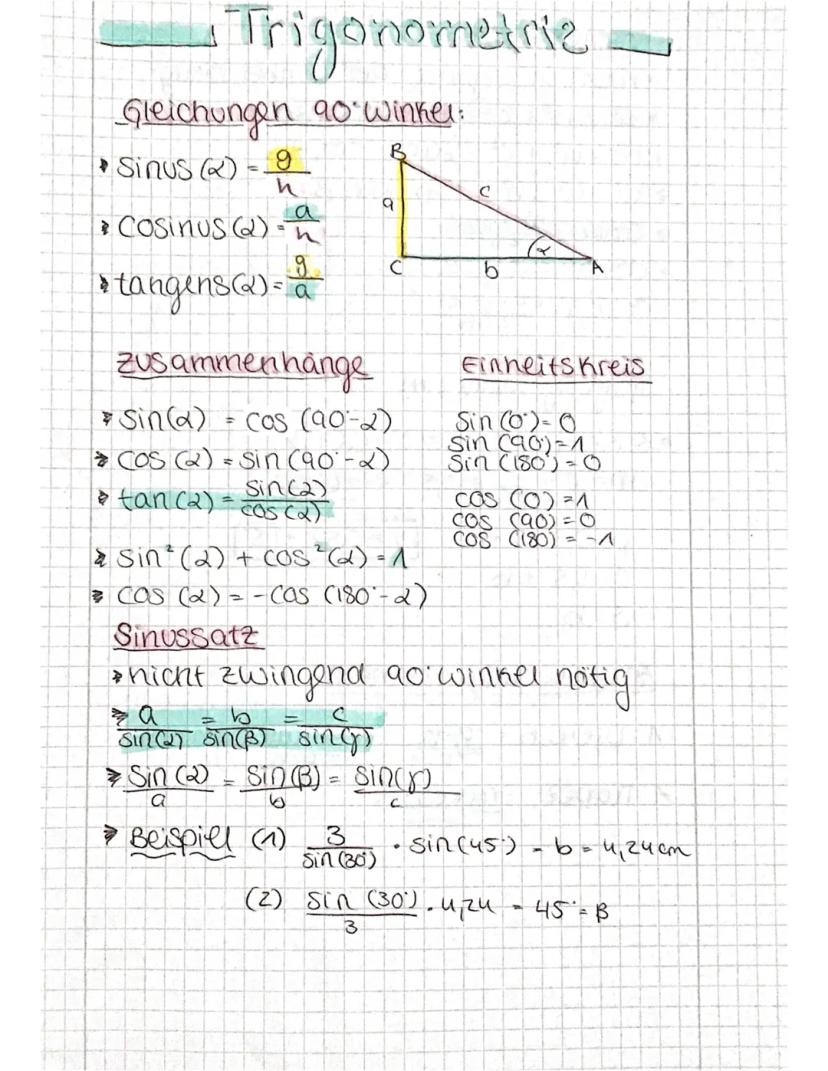 Trigonometrie
Gleichungen 90° Winkel:
sinus (α) = g/h
cosinus (α) = a/h
tangens (α) = g/a
B
a
c
α
C
b
A
Zusammenhänge
sin(α) = cos (90°-α)
cos (α) = sin (90°-α)
tan (α) = sin(α)/cos(α)
sin²(α) + cos²(α) = 1
cos (α) = -cos (180°-α)
Einheitskreis
sin (0°) = 0
sin (90°) = 1
sin (180°) = 0
cos (0) = 1
cos (90) = 0
cos (180) = -1
Sinussatz
nicht zwingend 90° winkel nötig
a/sin(α) = b/sin(β) = c/sin(γ)
sin(α)/a = sin(β)/b = sin(γ)/c
Beispiel (1) 3/sin(30°) · sin(45°) = b = 4,24cm
(2) sin(30°)/3 · 4,24 = 45° = β